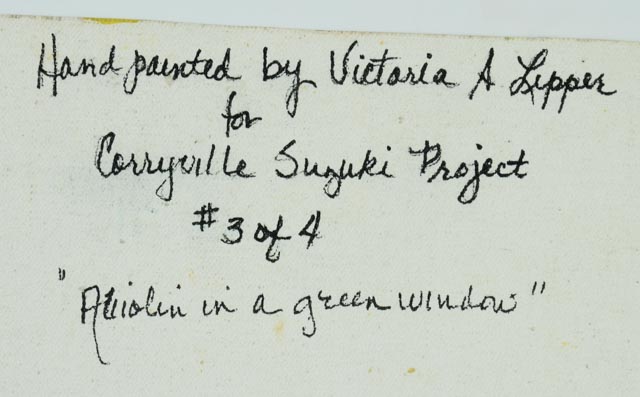 Hand painted by Victoria A Lipper
for
Corryville Suzuki Project
#3 of 4
"A violin in a green window"